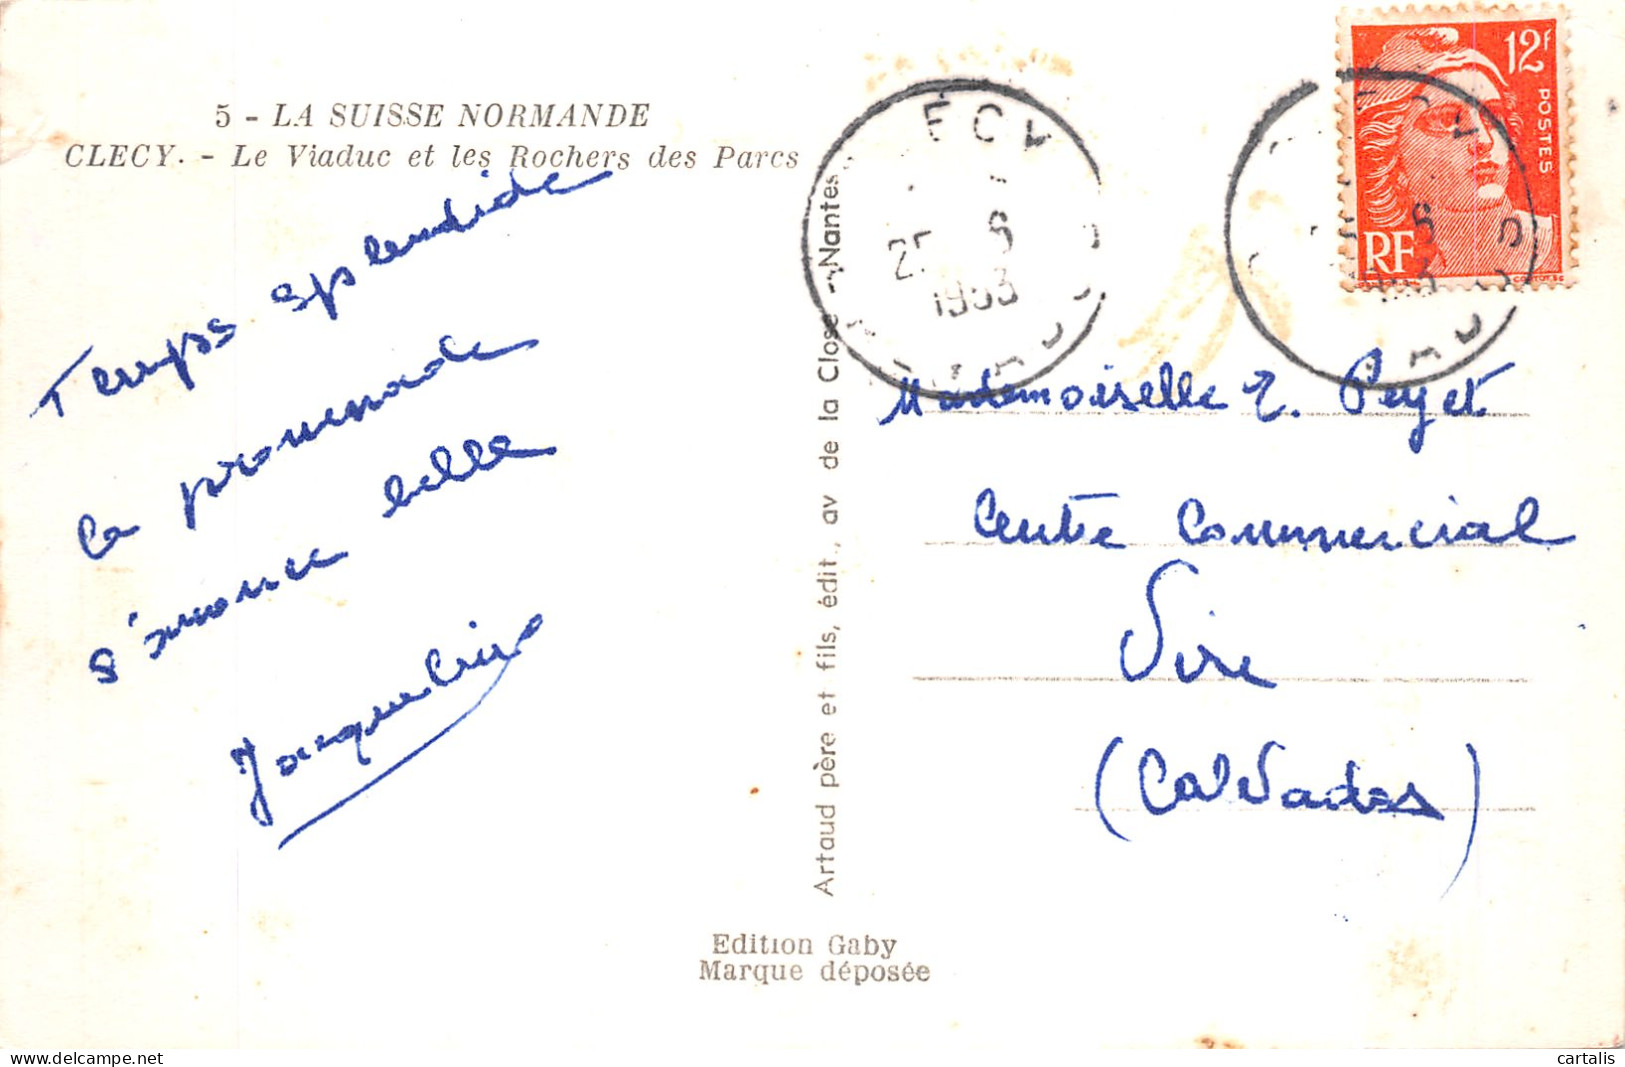 5 - LA SUISSE NORMANDE
CLECY. - Le Viaduc et les Rochers des Parcs
Temps splendide
la promenade
s'annonce belle
Jacqueline
Artaud père et fils, édit., av de la Close - Nantes
ECY
6
1953
12f
POSTES
RF
Mademoiselle E. Peyet
Centre Commercial
Vire
(Calvados)
Edition Gaby
Marque déposée
cartalis
delcampe.net